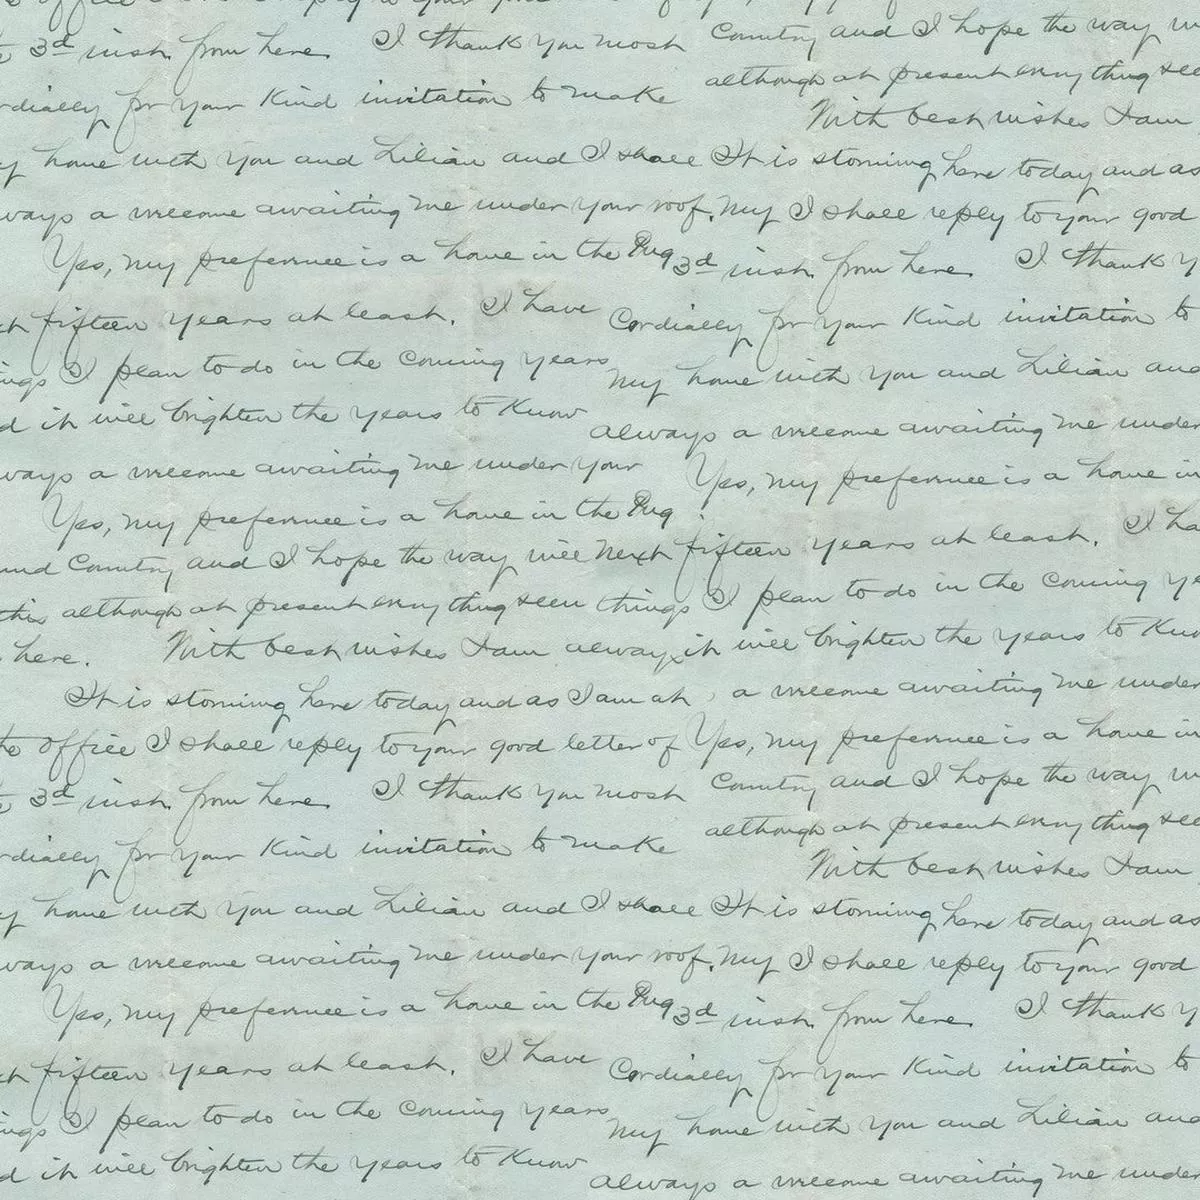 3d inst. from here I thank you most Country and I hope the way
cordially for your kind invitation to make although at present every thing see
With best wishes I am
my home with you and Lilian and I shall It is storming here today and as
ways a welcome awaiting me under your roof. My I shall reply to your good
Yes, my preference is a home in the Pug 3d inst. from here I thank y
fifteen years at least. I have Cordially for your kind invitation to
ings I plan to do in the coming years My home with you and Lilian and
d it will brighten the years to know always a welcome awaiting me under
ways a welcome awaiting me under your Yes, my preference is a home in
Yes, my preference is a home in the Pug
und Country and I hope the way will next fifteen years at least. I ha
this although at present every thing seen things I plan to do in the coming ye
here. With best wishes I am always it will brighten the years to Kno
It is storming here today and as I am at a welcome awaiting me under
the office I shall reply to your good letter of Yes, my preference is a home in
3d inst. from here I thank you most Country and I hope the way
rdially for your kind invitation to make although at present every thing see
With best wishes I am
y home with you and Lilian and I shall It is storming here today and as
ways a welcome awaiting me under your roof. My I shall reply to your good
Yes, my preference is a home in the Pug 3d inst. from here I thank y
fifteen years at least. I have Cordially for your kind invitation to
ings I plan to do in the coming years My home with you and Lilian and
d it will brighten the years to know always a welcome awaiting me under